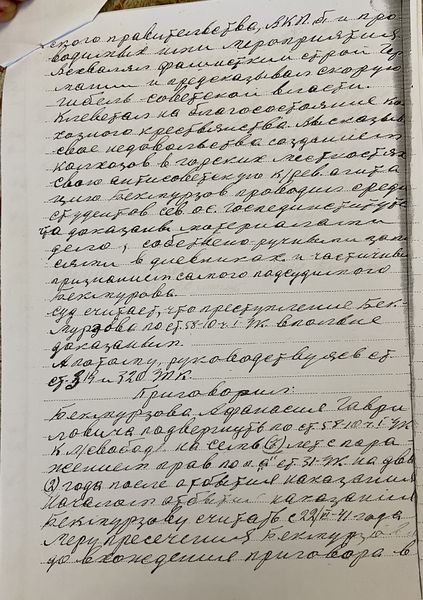 ского правительства, ВКП(б) и про
водимых ими мероприятия
Восхвалял фашистский строй Гер
мании и предсказывал скорую
гибель советской власти.
Клеветал на благосостояние кол
хозного крестьянства. Высказывал
свое недовольства созданием
колхозов в горских местностях
Свою антисоветскую к/рев. агита
цию Бекмурзов проводил среди
студентов Сев. ос. Госпединститута
доказаны материалами
дела, собственно-ручными запи
сями в дневниках и частичным
признанием самого подсудимого
Бекмурзова.
Суд считает, что преступление Бек
мурзова по ст. 58-10 ч. I УК вполне
доказанным.
А потому, руководствуясь ст
ст. 319 и 320 УПК
Приговорил:
Бекмурзова Афанасия Гаври
ловича подвергнуть по ст 58-10 ч. I УК
к л/свободы на семь лет с пора
жением прав по п. "а" ст. 31 УК на два
(2) года после отбытия наказания
Началом отбытия наказания
Бекмурзову считать с 22/ -41 года
Меру пресечения Бекмурзову
до вхождения приговора в